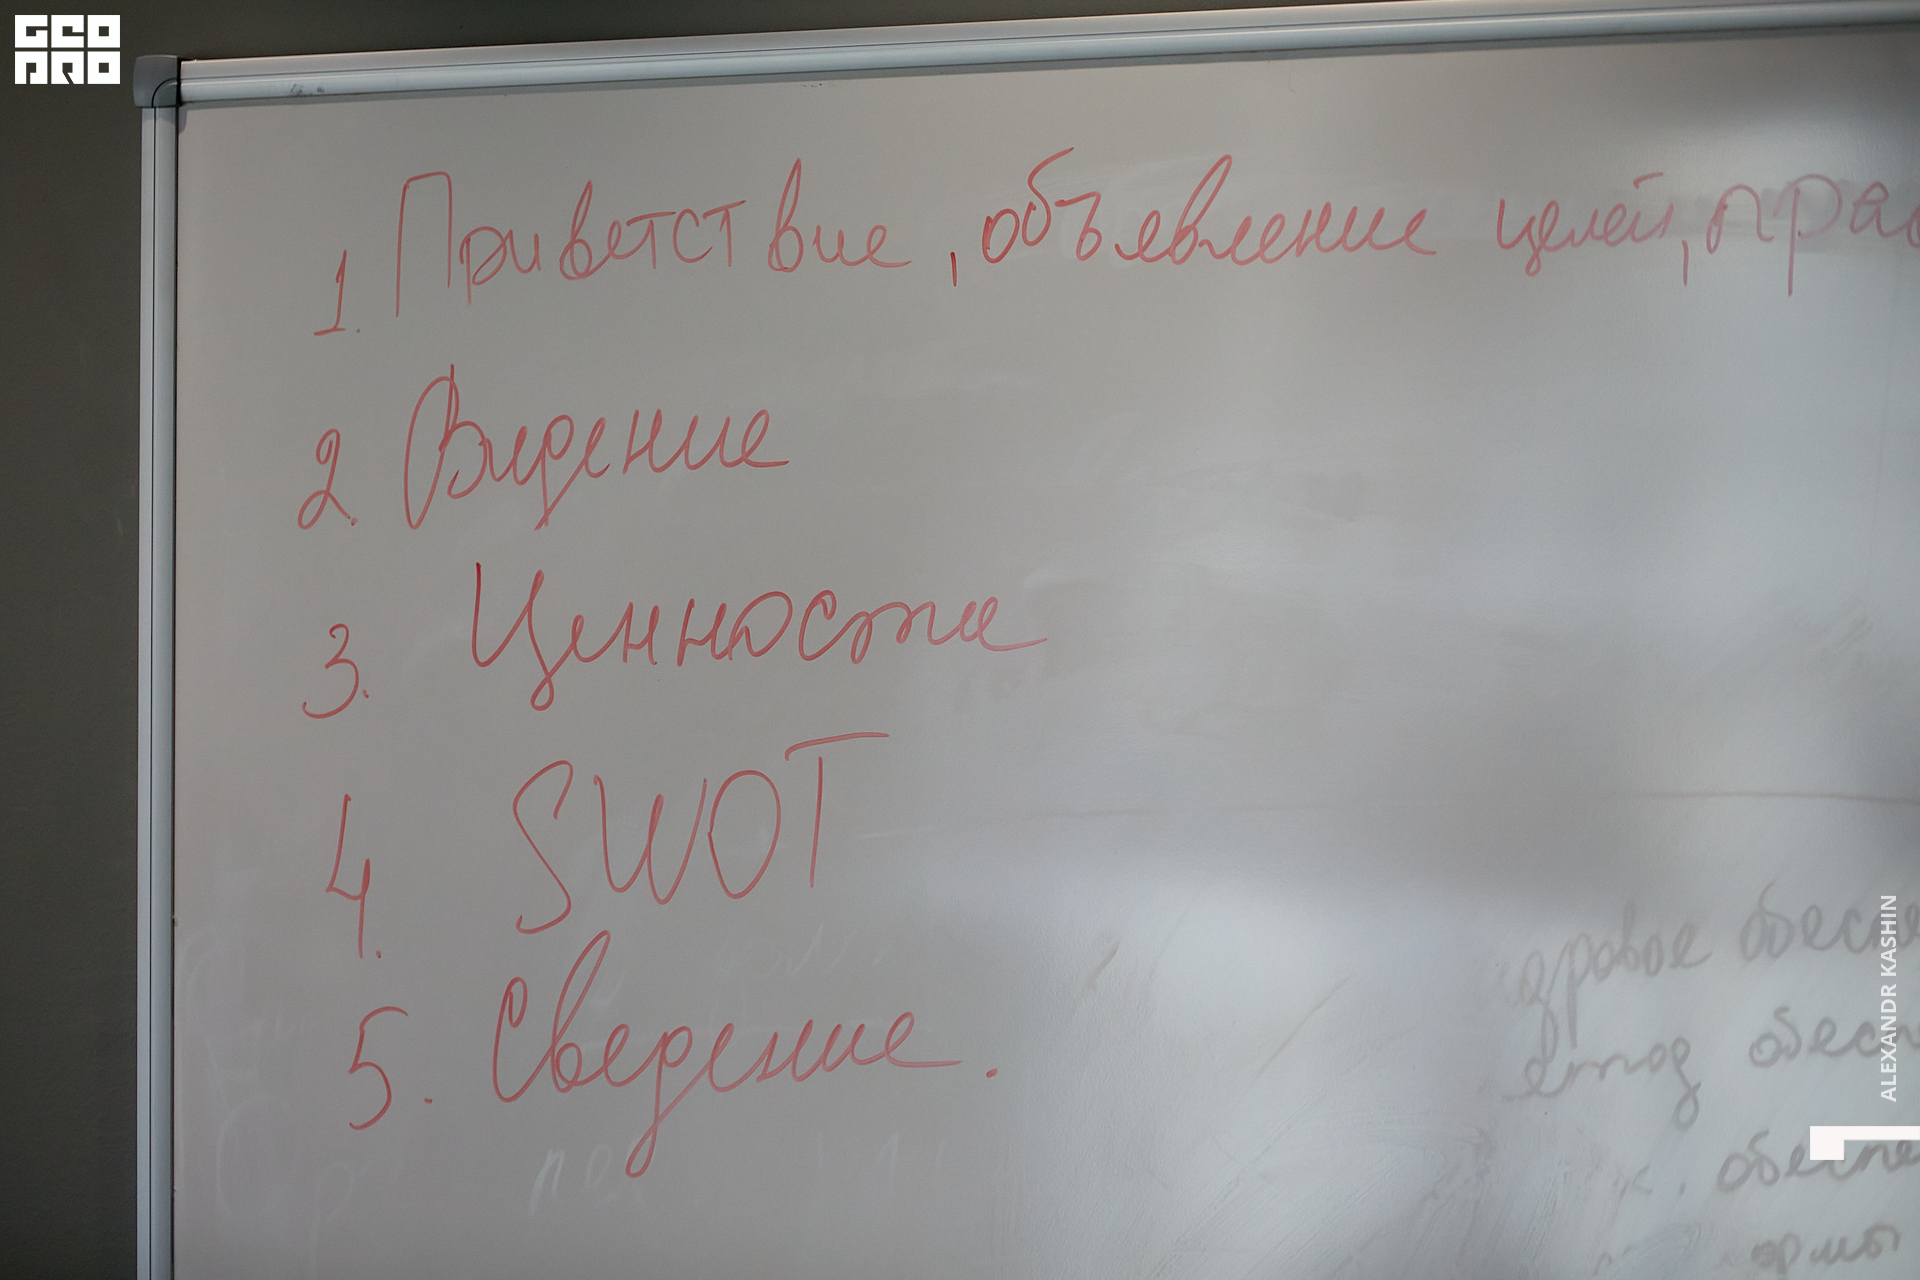 GEO
PRO
1. Приветствие, объявление целей, прав
2. Видение
3. Ценности
4. SWOT
5. Сведение.
дровое обеспе
етод обесп
обеспе
ормы
ALEXANDR KASHIN